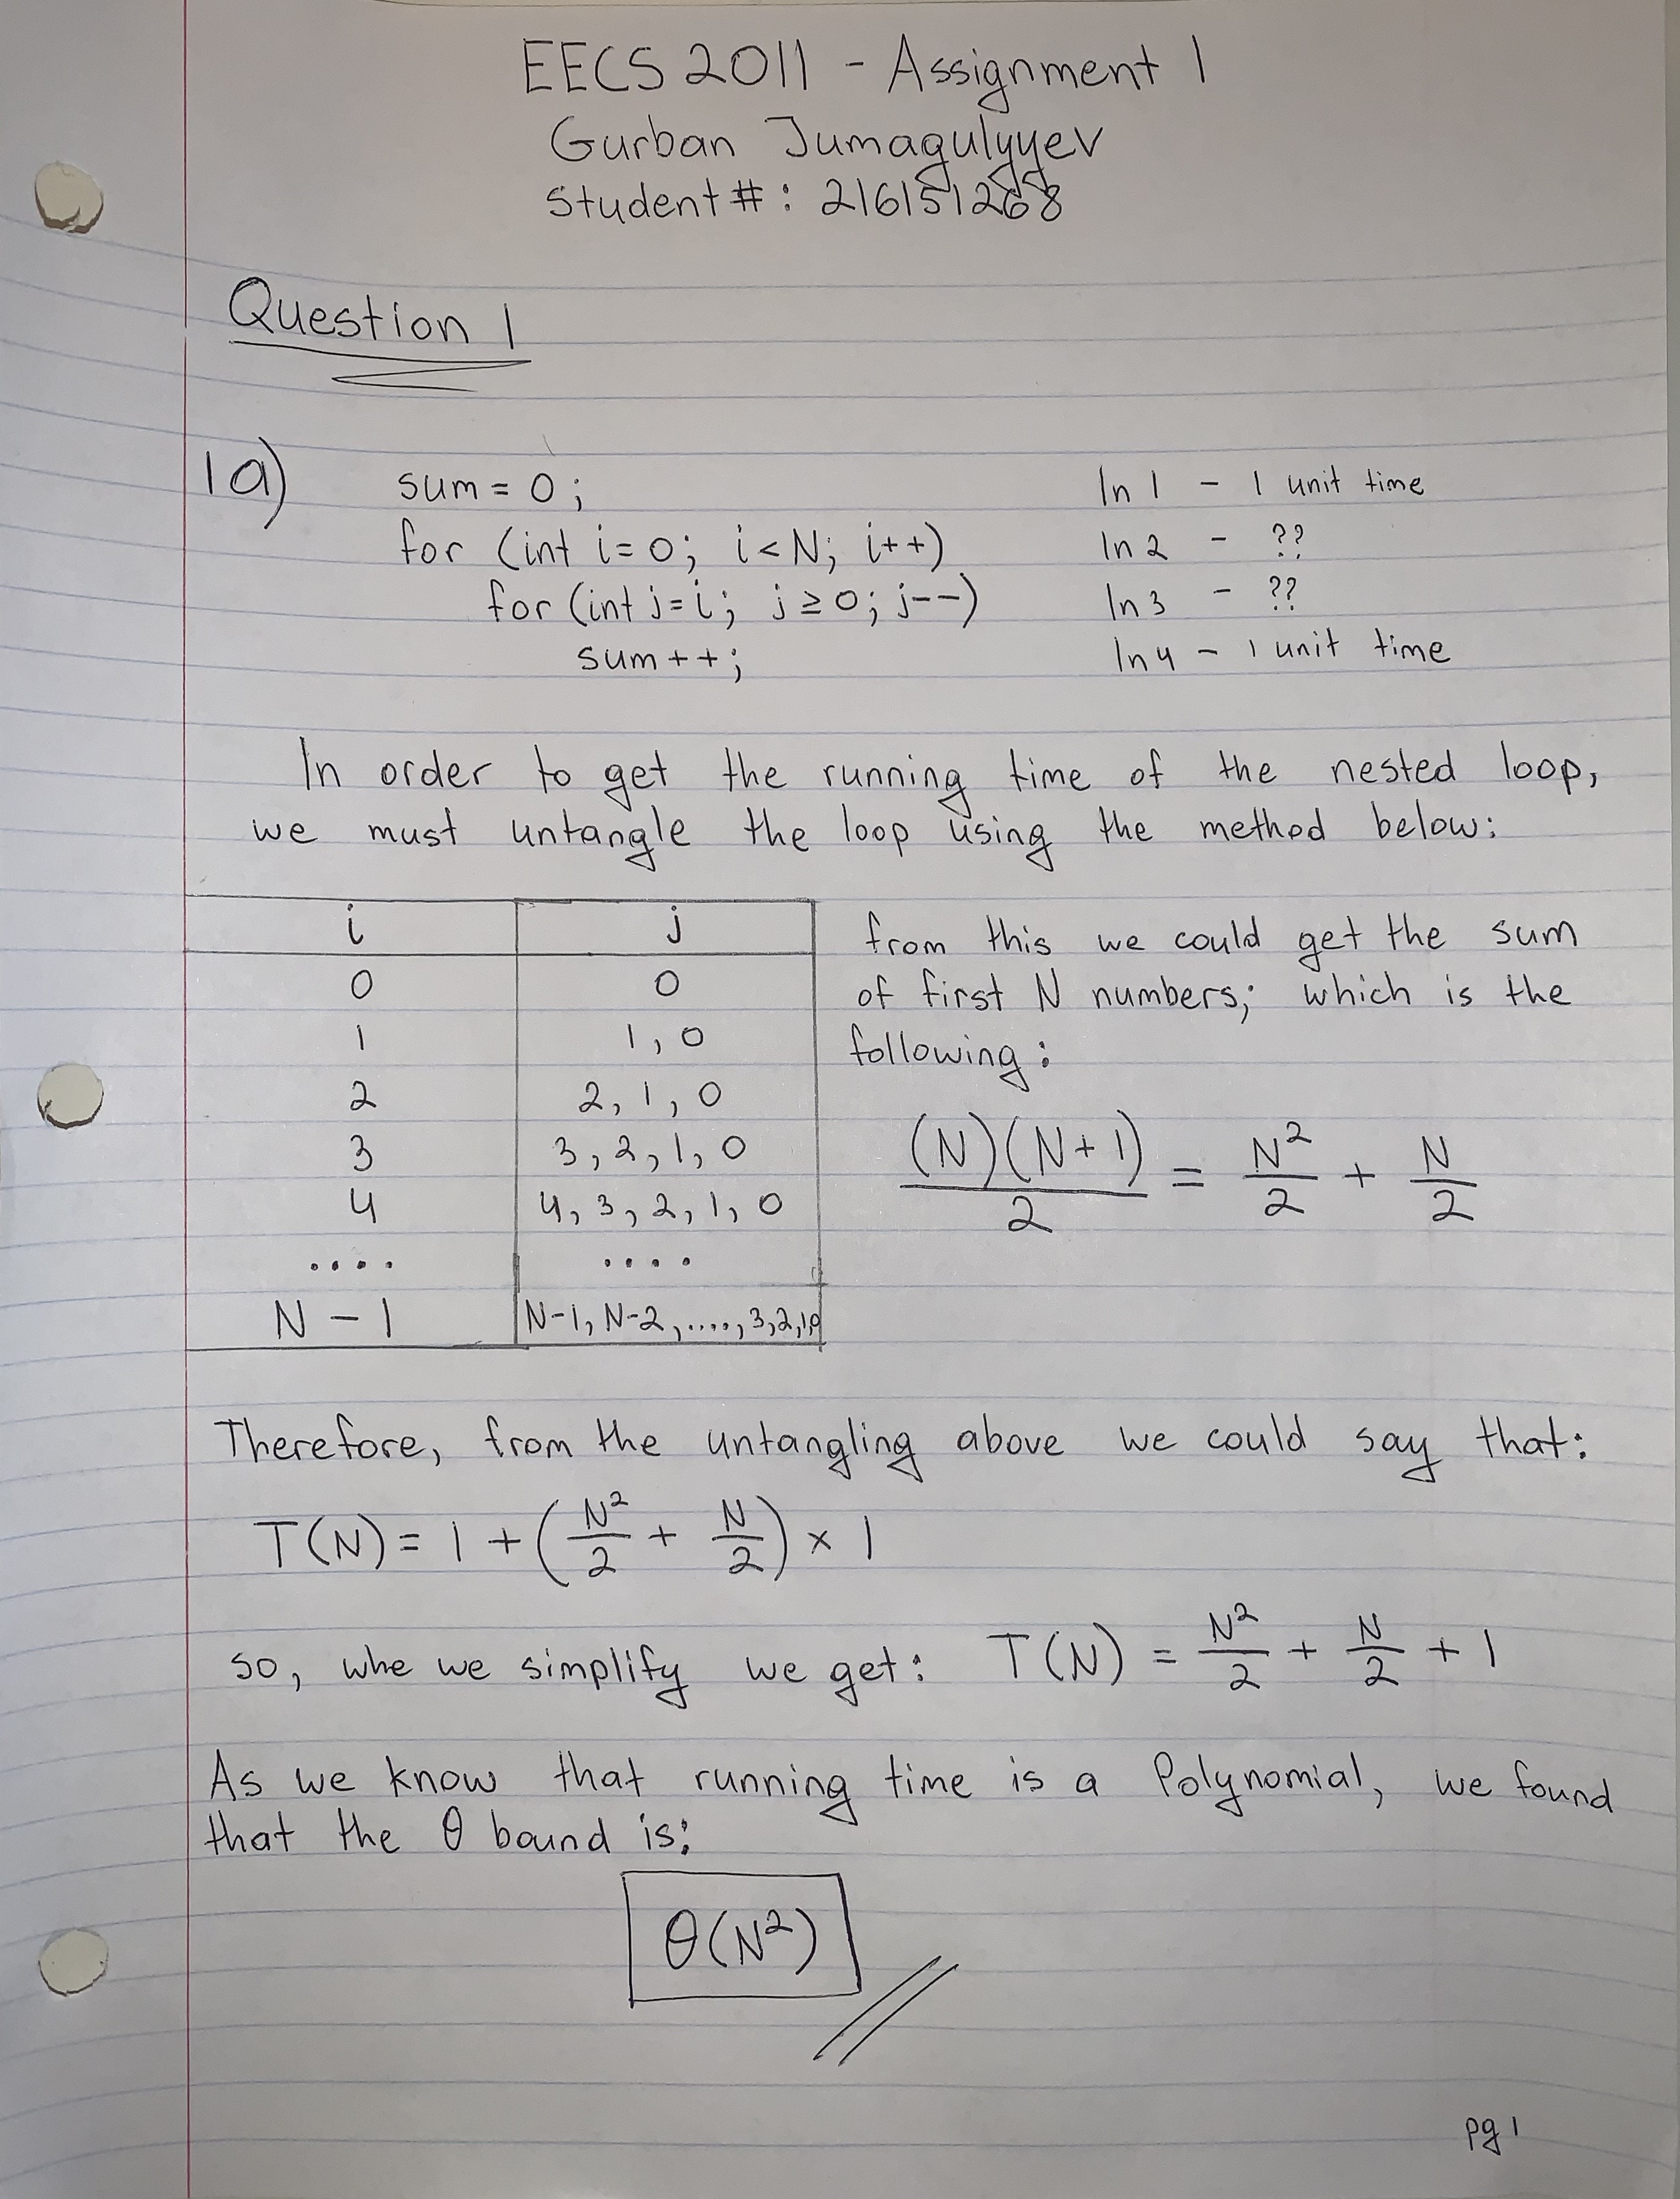 EECS 2011 - Assignment 1
Gurban Jumagulyyev
Student #: 216151268
Question 1
1a)
sum = 0; ln 1 - 1 unit time
for (int i=0; i<N; i++) ln 2 - ??
for (int j=i; j≥0; j--) ln 3 - ??
sum++; ln 4 - 1 unit time
In order to get the running time of the nested loop,
we must untangle the loop using the method below:
i j
0 0
1 1, 0
2 2, 1, 0
3 3, 2, 1, 0
4 4, 3, 2, 1, 0
.... ....
N-1 N-1, N-2, ...., 3,2,1,0
from this we could get the sum
of first N numbers; which is the
following:
(N)(N+1)/2 = N²/2 + N/2
Therefore, from the untangling above we could say that:
T(N) = 1 + (N²/2 + N/2) × 1
so, whe we simplify we get: T(N) = N²/2 + N/2 + 1
As we know that running time is a Polynomial, we found
that the θ bound is:
θ(N²)
pg 1